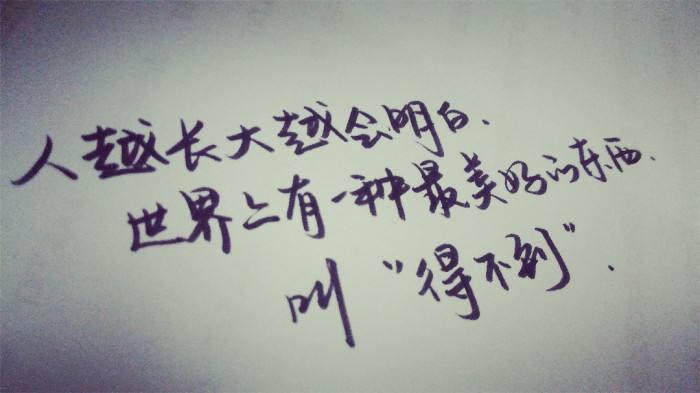 人越长大越会明白.
世界上有一种最美好的东西.
叫“得不到”.